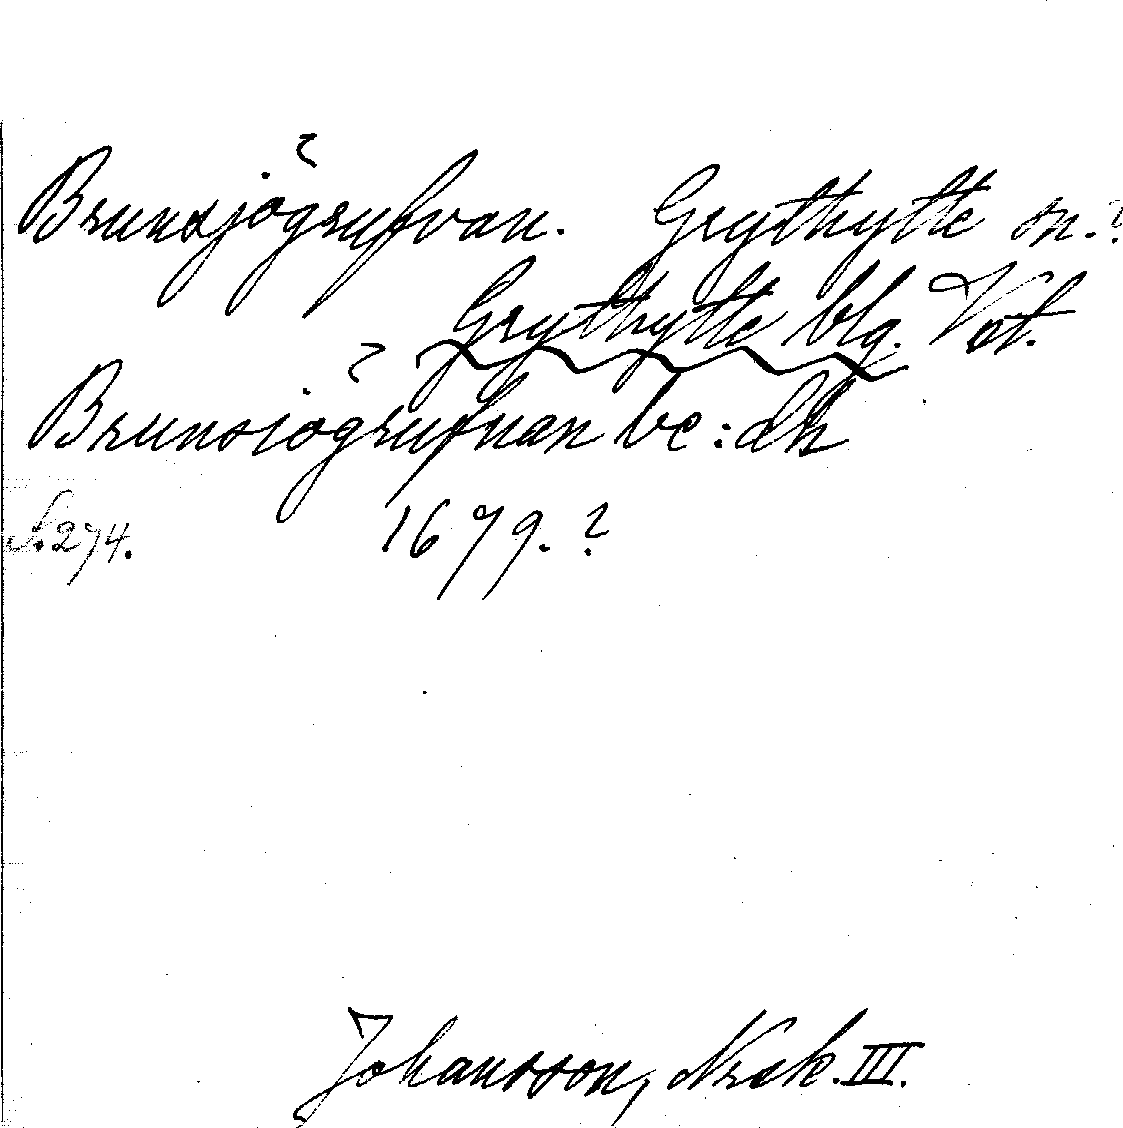 Brunsjögrufvan. Grythytte sn.?
Grythytte blg. Vst.
Brunsiögrufnan be:dh
S. 274. 1679. ?
Johansson, Nrsk. III.